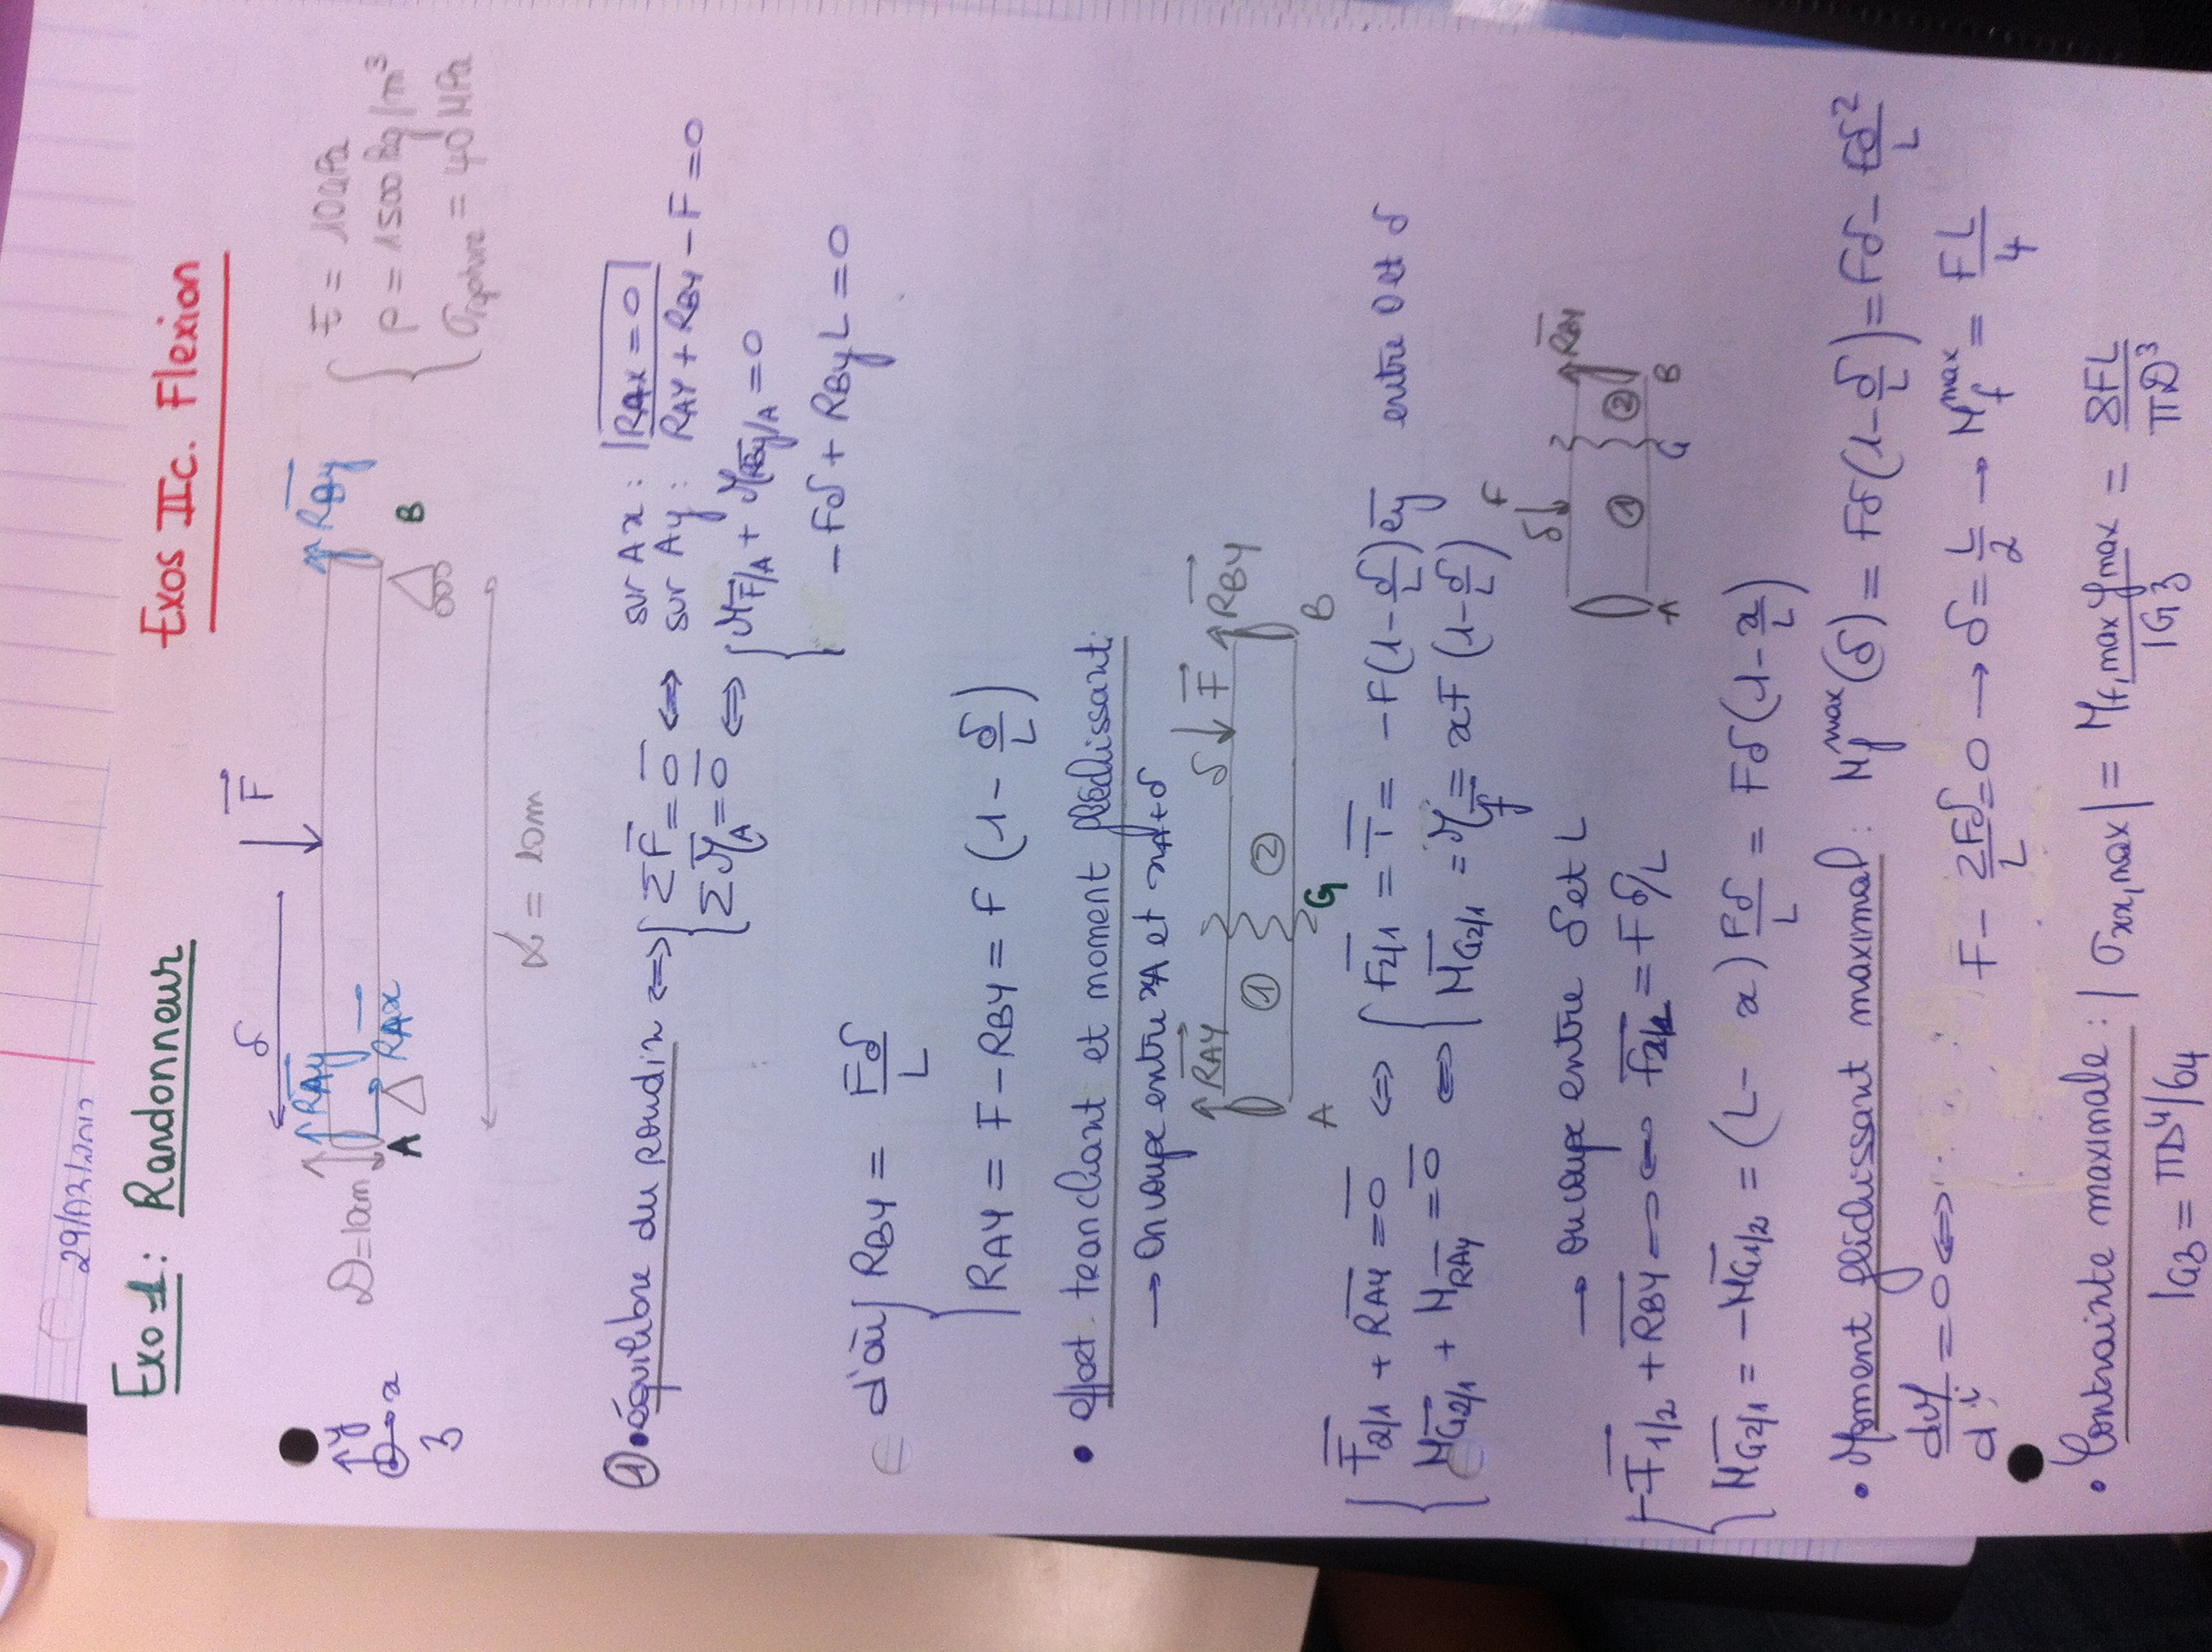 29/03/2012
Exo 1 : Randonneur
Exos IIc. Flexion
δ
F
RAy
RBy
D=10cm
RAx
y
x
3
A
B
E = 10GPa
ρ = 1500 kg/m³
σrupture = 40 MPa
L = 10m
① • équilibre du rondin ⇔ { ΣF = 0 ⇔ sur Ax : RAx = 0
sur Ay : RAY + RBY - F = 0
ΣM_A = 0 ⇔ { M_F/A + M_RBy/A = 0
-Fδ + RBy L = 0
d'où { RBY = Fδ/L
RAY = F - RBY = F (1 - δ/L)
• effort tranchant et moment fléchissant
→ On coupe entre xA et xA+δ
RAY
δ
F
RBY
① ②
A G B
{ F2/1 + RAY = 0 ⇔ { F2/1 = T = -F(1 - δ/L) ey entre 0 et δ
MG2/1 + MRAY = 0 ⇔ MG2/1 = Mf = xF (1 - δ/L)
→ On coupe entre δ et L
F
δ
① ②
A G B
F1/2 + RBY = 0 ⇔ F2/1 = F δ/L
MG2/1 = -MG1/2 = (L - x) Fδ/L = Fδ(1 - x/L)
• Moment fléchissant maximal : Mf^max(δ) = Fδ(1 - δ/L) = Fδ - Fδ²/L
= 0 ⇔ F - 2Fδ/L = 0 → δ = L/2 → Mf^max = FL/4
• Contrainte maximale : |σxx,max| = Mf,max ymax / IG3 = 8FL/πD³
IG3 = πD⁴/64